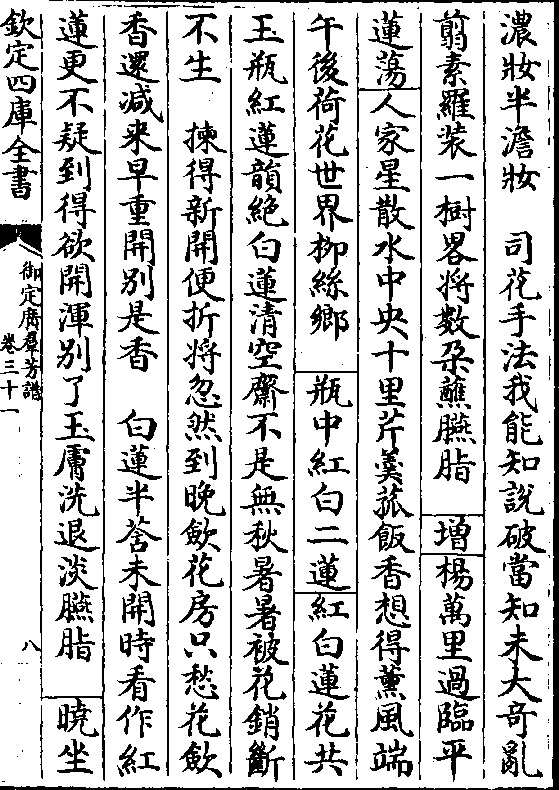 濃妝半澹妝　司花手法我能知說破當知未大奇亂
翦素羅装一樹畧將數朶蘸臙脂　增楊萬里過臨平
蓮蕩人家星散水中央十里芹羹菰飯香想得薰風端
午後荷花世界栁絲鄉　瓶中紅白二蓮紅白蓮花共
玉瓶紅蓮韻絶白蓮清空齋不是無秋暑暑被花銷斷
不生　揀得新開便折將忽然到晚斂花房只愁花斂
香還减来早重開別是香　白蓮半荅未開時看作紅
蓮更不疑到得欲開渾別了玉膚洗退淡臙脂　曉坐
欽定四庫全書
御定廣羣芳譜
卷三十一
八